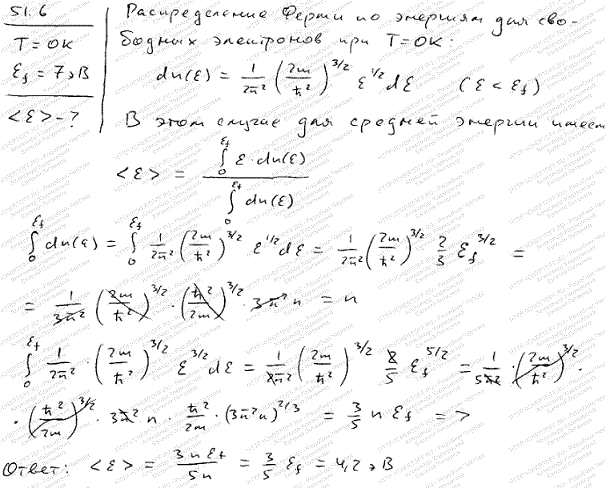 51.6
T = 0K
εf = 7 эВ
<ε> - ?
Распределение Ферми по энергиям для сво-
бодных электронов при T = 0K.
dn(ε) = 1/2π² (2m/ħ²)^3/2 ε^1/2 dε (ε < εf)
В этом случае для средней энергии имеем
<ε> = ∫₀^εf ε dn(ε) / ∫₀^εf dn(ε)
∫₀^εf dn(ε) = ∫₀^εf 1/2π² (2m/ħ²)^3/2 ε^1/2 dε = 1/2π² (2m/ħ²)^3/2 2/3 εf^3/2 =
= 1/3π² (2m/ħ²)^3/2 · (ħ²/2m)^3/2 · 3π² n = n
∫₀^εf 1/2π² · (2m/ħ²)^3/2 ε^3/2 dε = 1/2π² (2m/ħ²)^3/2 2/5 εf^5/2 = 1/5π² · (2m/ħ²)^3/2 ·
· (ħ²/2m)^3/2 · 3π² n · ħ²/2m · (3π²n)^2/3 = 3/5 n εf =>
Ответ: <ε> = 3 n εf / 5n = 3/5 εf = 4,2 эВ